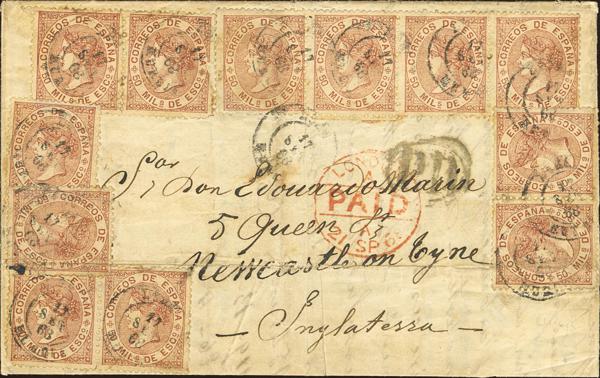 CORREOS DE ESPAÑA CORREOS DE ESPAÑA CORREOS DE ESPAÑA CORREOS DE ESPAÑA CORREOS DE ESPAÑA CORREOS DE ESPAÑA
50 MILS DE ESCO 50 MILS DE ESCO 50 MILS DE ESCO 50 MILS DE ESCO 50 MILS DE ESCO 50 MILS DE ESCO
CORREOS DE ESPAÑA
50 MILS DE ESCO
CORREOS DE ESPAÑA
50 MILS DE ESCO
CORREOS DE ESPAÑA
50 MILS DE ESCO
CORREOS DE ESPAÑA
50 MILS DE ESCO
CORREOS DE ESPAÑA CORREOS DE ESPAÑA
50 MILS DE ESCO 50 MILS DE ESCO
PD
LONDON
PAID
SP
por
Sr Don Edouardo Marin
5 Queen St
Newcastle on Tyne
- Inglaterra -